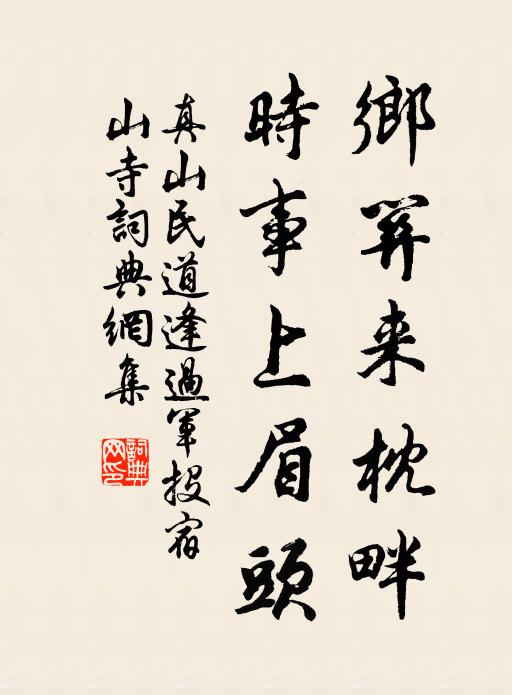 鄉関来枕畔
時事上眉頭
真山民道逢過軍投宿
山寺詞典網集
詞典网印